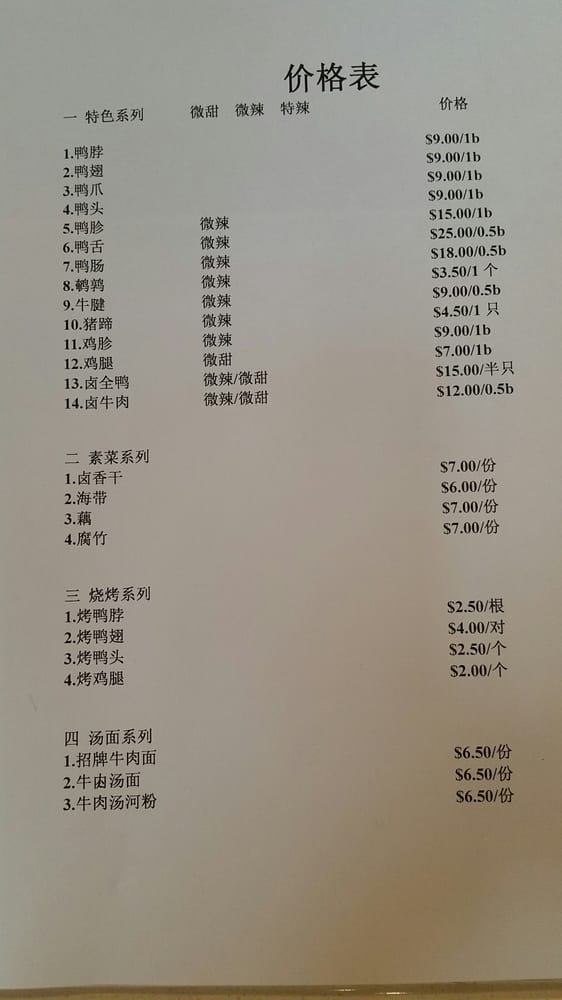 价格表
一 特色系列 微甜 微辣 特辣 价格
1.鸭脖 $9.00/1b
2.鸭翅 $9.00/1b
3.鸭爪 $9.00/1b
4.鸭头 $9.00/1b
5.鸭胗 微辣 $15.00/1b
6.鸭舌 微辣 $25.00/0.5b
7.鸭肠 微辣 $18.00/0.5b
8.鹌鹑 微辣 $3.50/1 个
9.牛腱 微辣 $9.00/0.5b
10.猪蹄 微辣 $4.50/1 只
11.鸡胗 微辣 $9.00/1b
12.鸡腿 微甜 $7.00/1b
13.卤全鸭 微辣/微甜 $15.00/半只
14.卤牛肉 微辣/微甜 $12.00/0.5b
二 素菜系列
1.卤香干 $7.00/份
2.海带 $6.00/份
3.藕 $7.00/份
4.腐竹 $7.00/份
三 烧烤系列
1.烤鸭脖 $2.50/根
2.烤鸭翅 $4.00/对
3.烤鸭头 $2.50/个
4.烤鸡腿 $2.00/个
四 汤面系列
1.招牌牛肉面 $6.50/份
2.牛肉汤面 $6.50/份
3.牛肉汤河粉 $6.50/份